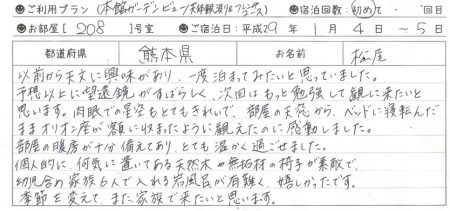 ●ご利用プラン(本館ガーデンビュー天体観測&フレンチコース) ●ご宿泊回数:初めて・ 回目
●お部屋[208]号室 ●ご宿泊日:平成29年1月4日~5日
都道府県 熊本県 お名前 松尾
以前から天文に興味があり、一度泊まってみたいと思っていました。
予想以上に望遠鏡がすばらしく、次回はもっと勉強して観に来たいと
思います。肉眼での星空もとてもきれいで、部屋の天窓から、ベッドに寝転んだ
ままオリオン座が額に収まったように観えたのに感動しました。
部屋の暖房が十分備えてあり、とても温かく過ごせました。
個人的に、何気に置いてある天然木や無垢材の椅子が素敵で、
幼児含め家族6人で入れる岩風呂が有難く、嬉しかったです。
季節を変えて、また家族で来たいと思います。